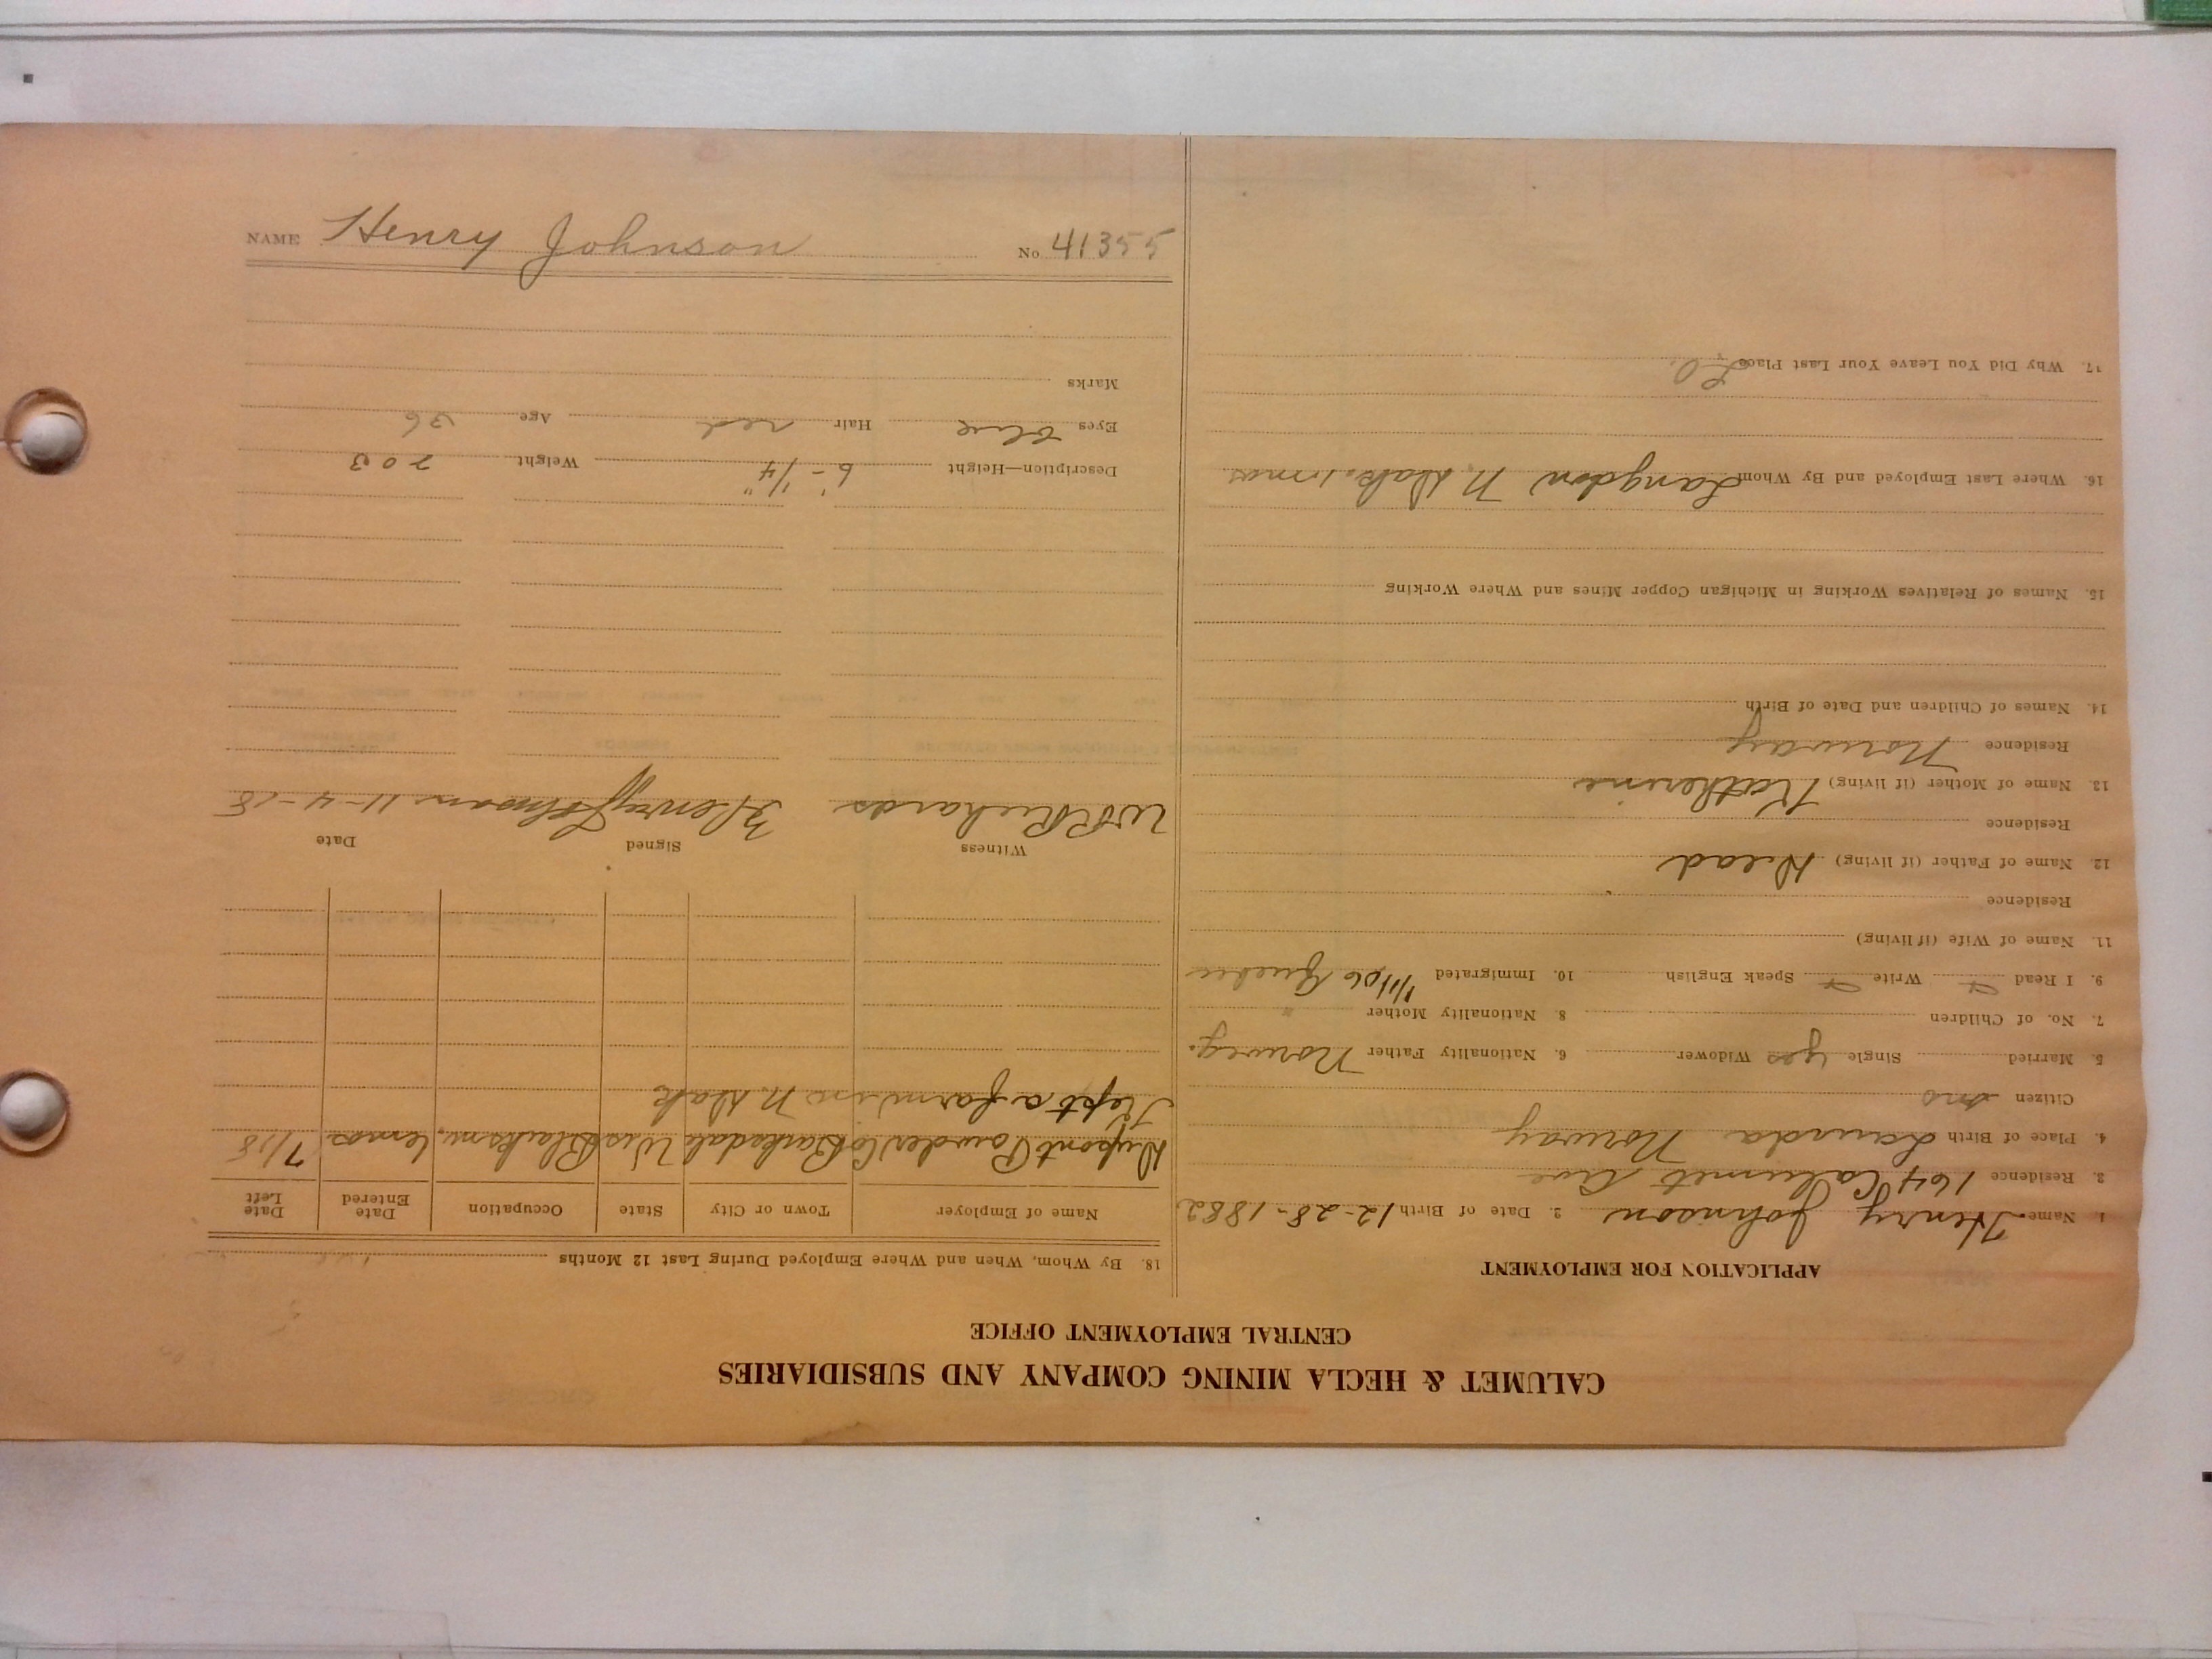 CALUMET & HECLA MINING COMPANY AND SUBSIDIARIES
CENTRAL EMPLOYMENT OFFICE
APPLICATION FOR EMPLOYMENT
1. Name Henry Johnson 2. Date of Birth 12-28-1882
3. Residence 164 Calumet Ave
4. Place of Birth Norway
Citizen no
5. Married Single yes Widower 6. Nationality Father Norweg.
7. No. of Children 8. Nationality Mother "
9. I Read Write Speak English 10. Immigrated 1/1/06 Quebec
11. Name of Wife (if living)
Residence
12. Name of Father (if living) Dead
Residence
13. Name of Mother (if living) Katherine
Residence Norway
14. Names of Children and Date of Birth
15. Names of Relatives Working in Michigan Copper Mines and Where Working
16. Where Last Employed and By Whom Langdon N. Dak. 1 mos
17. Why Did You Leave Your Last Place
18. By Whom, When and Where Employed During Last 12 Months
Name of Employer Town or City State Occupation Date Entered Date Left
Dupont Powder Co Barksdale Wis Blacksm. 6 mos 7/18
Kept a farm in N. Dak
Witness Signed Date
W P Richards Henry Johnson 11-4-18
Description—Height 6'-1/4" Weight 203
Eyes blue Hair red Age 36
Marks
NAME Henry Johnson No 41355